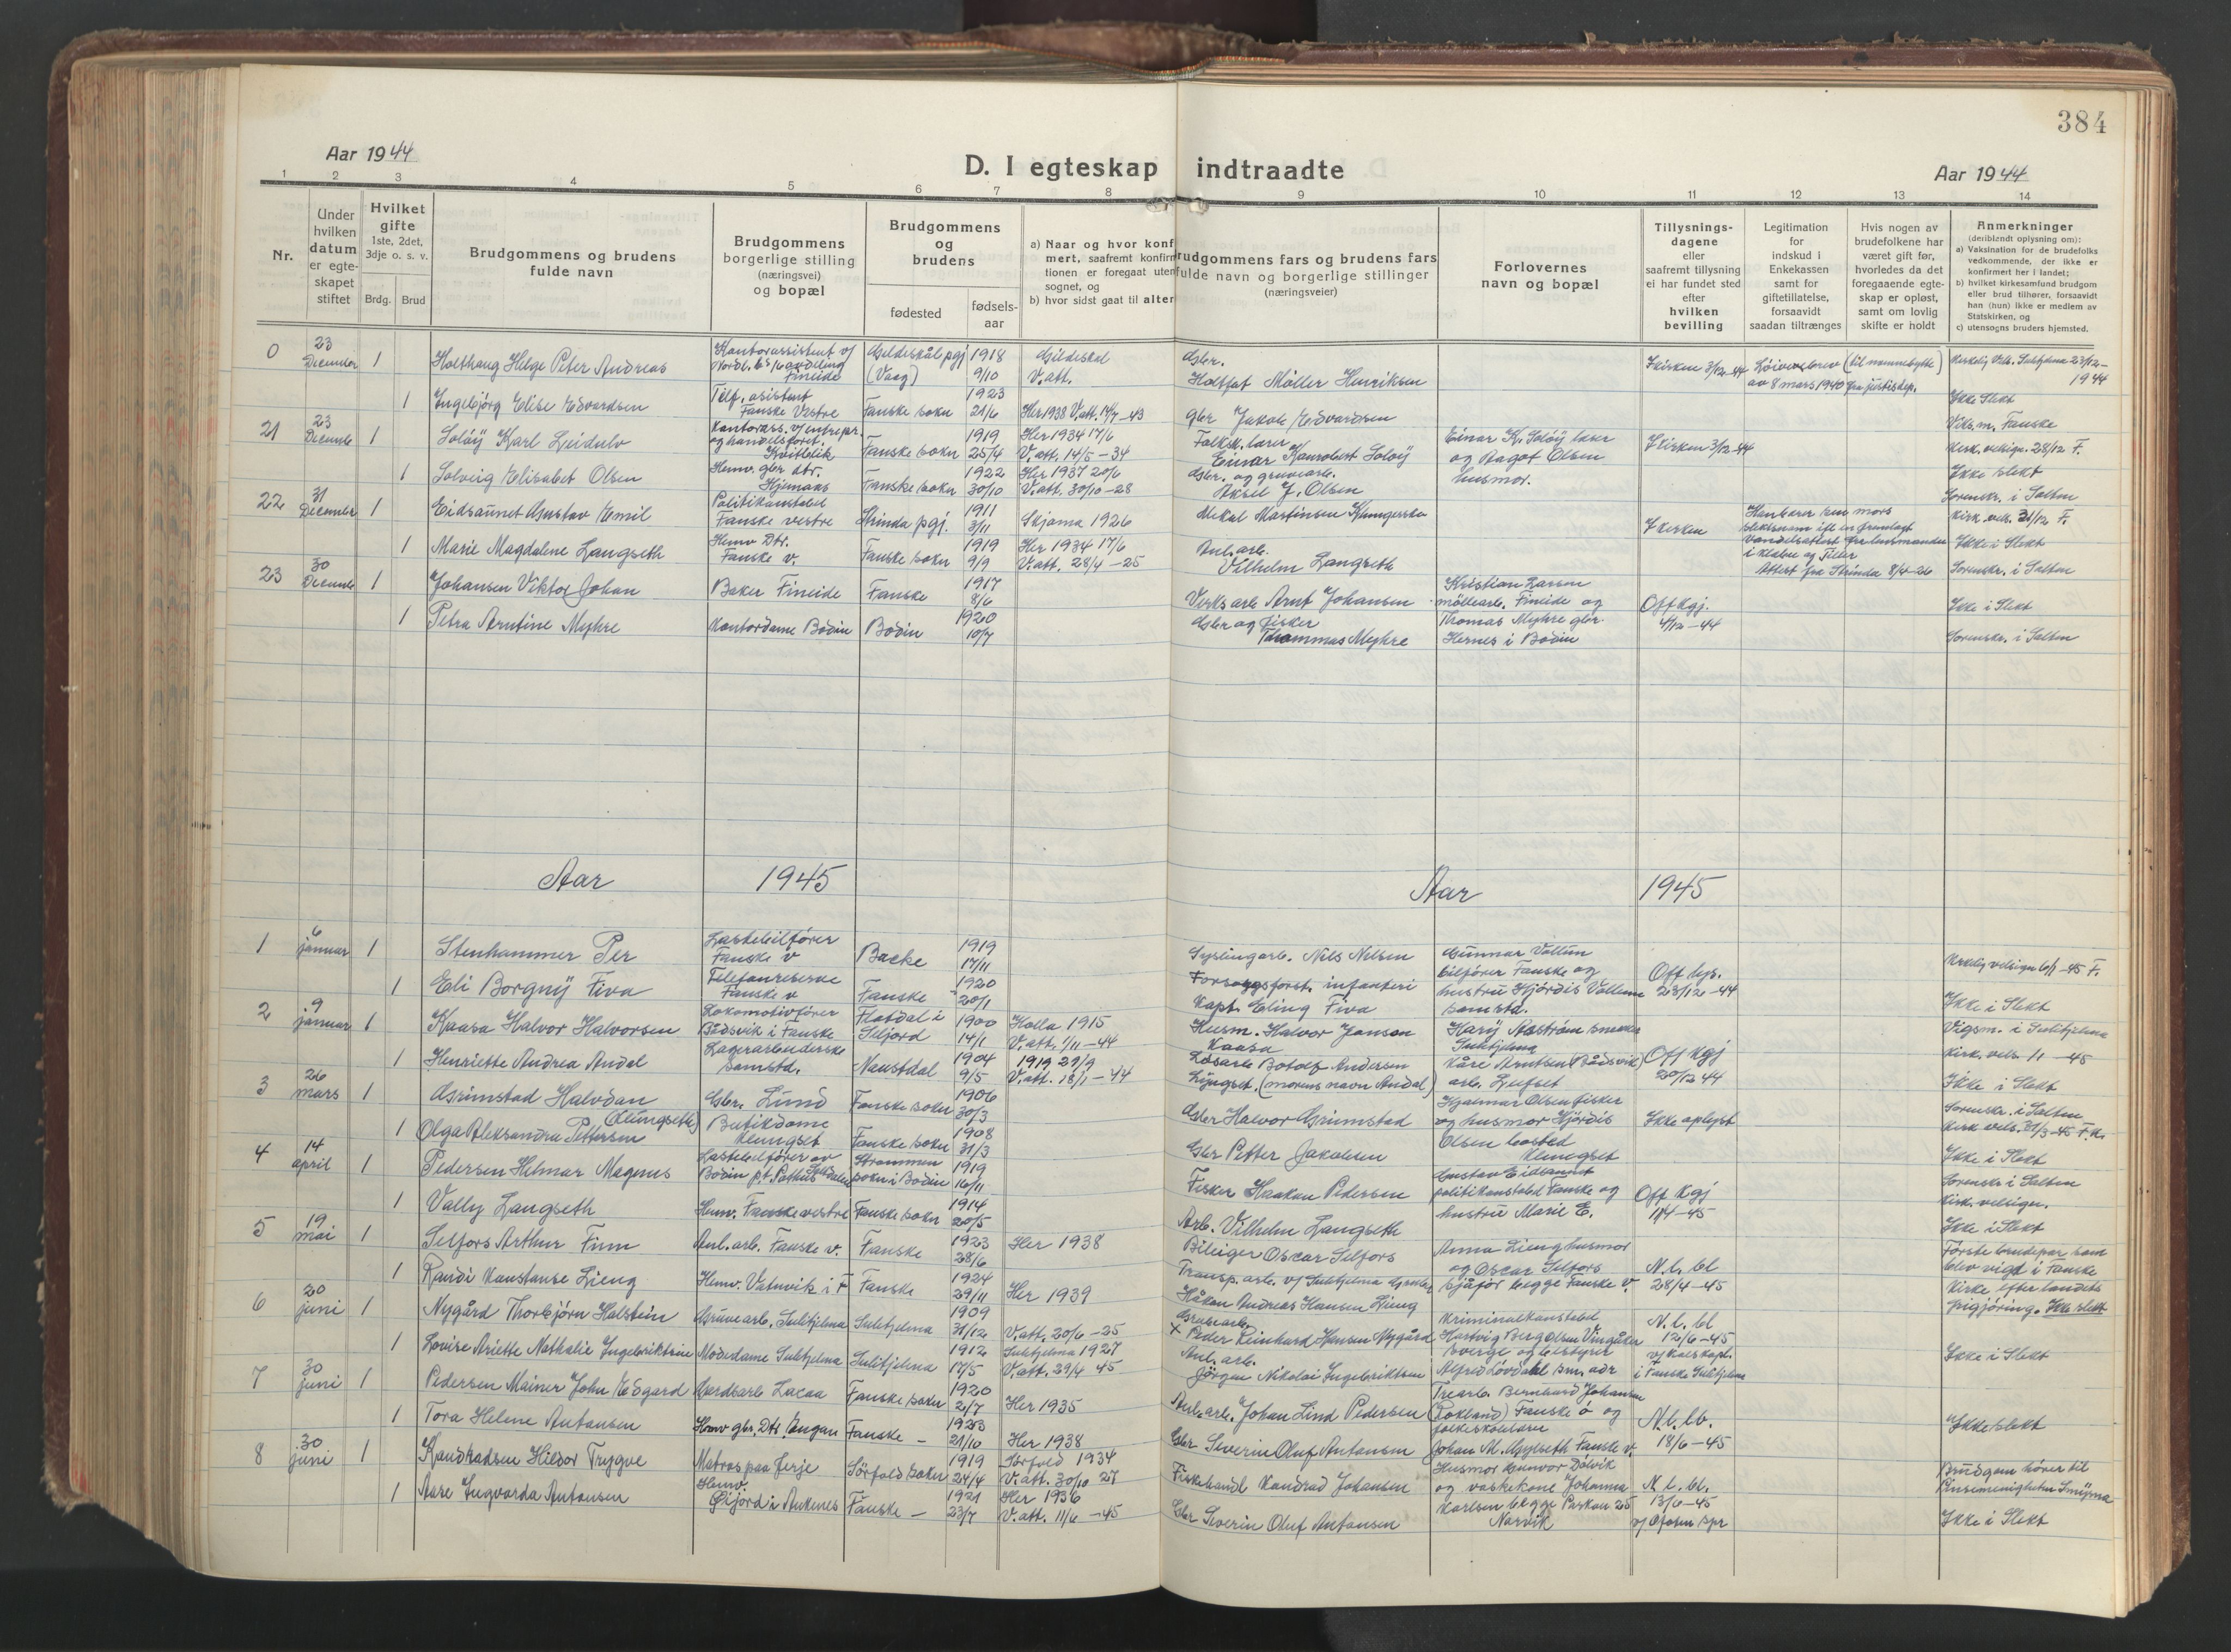 384
Aar 1944
D. I egteskap indtraadte
Aar 1944
1 2 3 4 5 6 7 8 9 10 11 12 13 14
Nr.
Under hvilken datum er egteskapet stiftet
Hvilket gifte 1ste, 2det, 3dje o. s. v.
Brdg. Brud
Brudgommens og brudens fulde navn
Brudgommens borgerlige stilling (næringsvei) og bopæl
Brudgommens og brudens
fødested
fødsels-aar
a) Naar og hvor konfirmert, saafremt konfirmationen er foregaat utenfor sognet, og
b) hvor sidst gaat til alters
Brudgommens fars og brudens fars fulde navn og borgerlige stillinger (næringsveier)
Forlovernes navn og bopæl
Tillysnings-dagene eller saafremt tillysning ei har fundet sted efter hvilken bevilling
Legitimation for indskud i Enkekassen samt for giftetillatelse, forsaavidt saadan tiltrænges
Hvis nogen av brudefolkene har været gift før, hvorledes da det foregaaende egteskap er opløst, samt om lovlig skifte er holdt
Anmerkninger (deriblendt oplysning om):
a) Vaksination for de brudefolks vedkommende, der ikke er konfirmert her i landet;
b) hvilket kirkesamfund brudgom eller brud tilhører, forsaavidt han (hun) ikke er medlem av Statskirken, og
c) utensogns bruders hjemsted.
0 23 December 1 Holthaug Helge Peter Andreas Kontorassistent v/ Fineide Gildeskål pgj (Vaag) 1918 9/10 Gildeskål V. att. Gbr. Holtfat Møller Henriksen I kirken 3/12-44 av 8 mars 1940 fra justisdep. 23/12-1944
1 Ingebjørg Elise Edvardsen Telf. asistent Fauske Vestre Fauske sokn 1923 21/6 Her 1938 V. att. 14/7-43 Gbr Jakob Edvardsen Ikke Slekt
21 23 Decembe 1 Soløy Karl Leidulv Kontorass. v/ entrepr. og handelsforet. Fauske sokn 1919 25/4 Her 1934 17/6 V. att. 14/5-34 Folksk. lærer Einar Soløy Einar K. Soløy lærer og Ragot Olsen husmor. I kirken 3/12-44 Viks. m. Fauske Kirk. velsign. 28/12 F.
1 Solveig Elisabet Olsen Hemv. gbr dtr. Fauske sokn 1922 30/10 Her 1937 20/6 V. att. 30/10-28 Gbr. og gruvearb. Aksel J. Olsen Ikke slekt
22 31 December 1 Eidsaunet Gustav Emil Politikonstabel Fauske vestre Strinda pgj. 1911 3/11 Skjoma 1926 Mekal Martinsen I kirken Attest fra Strinda 8/4-26 Sorenskr. i Salten Kirk. vels. 31/12 F.
1 Marie Magdalene Langseth Hemv Dtr. Fauske v. Fauske sokn 1919 9/9 Her 1934 17/6 V. att. 28/4-25 Anl. arb. Vilhelm Langseth Ikke i Slekt
23 30 Decembe 1 Johansen Viktor Johan Baker Fineide Fauske 1917 8/6 Verksarb Arnt Johansen Kristian Larsen møllearb. Fineide og Off Kgj. 4/12-44 Sorenskr. i Salten
1 Petra Arntine Myhre Kontordame Bodin Bodin 1920 10/7 Gbr og fisker Thommas Myhre Thomas Myhre gbr. Hernes i Bodin Ikke i Slekt Sorenskr. i Salten
Aar 1945 Aar 1945
1 6 januar 1 Stenhammer Per Lastebilfører Fauske v Backe 1919 17/11 Nils Nelsen Gunnar Vollun bilfører Fauske og Off lys. 23/12-44 Kirkelig velsign 6/1-45 F.
1 Eli Borgny Fiva Fauske v Fauske 1920 20/1 Forsorgsforst. infanteri Kapt. Fiva hustru Hjördis samstd. Ikke i Slekt
2 9 januar 1 Kaasa Halvor Halvorsen Lokomotivfører Båsvik i Fauske Flatdal i Seljord 1900 14/1 Holla 1915 V. att. 1/11-44 Husm. Halvor Jonson Kaasa Sulitjelma Off Kgj 20/12 44 Vigsm. i Sulitjelma Kirk. vels. 1/1-45
1 Henriette Andrea Andal Lagerarbeiderske samstd. Naustdal 1904 9/5 1919 29/9 V. att. 18/1-44 Løsarb Botolf Andersen (morens navn Andal) Kåre Arntsen (Båsvik) arb. Ikke i Slekt
3 26 mars 1 Grimstad Halvdan Gbr. Lund Fauske sokn 1906 30/3 Gbr Halvor Grimstad Hjalmar Olsen fisker og husmor Hjördis Olsen bosted Klungset Ikke oplyst Sorenskr. i Salten Kirk vels.
1 Olga Aleksandra Pettersen (Klungseth) Butikdame Klungset Fauske sokn 1908 31/3 Gbr Petter Jakobsen Ikke i Slekt
4 14 april 1 Pedersen Helmar Magnus Lastebilfører av Bodin Strømmen sokn i Bodin 1919 16/11 Fisker Haakon Pedersen Gustav Eidsaunet politikonstabel Fauske og hustru Marie E. Off Kgj 11/4-45 Sorenskr. i Salten Kirk. velsign.
1 Vally Langseth Hemv. Fauske vestre Fauske sokn 1914 20/5 Arb. Vilhelm Langseth Ikke i Slekt
5 19 mai 1 Selfors Arthur Finn Anl. arb. Fauske v. Fauske 1923 28/6 Her 1938 Bileiger Oscar Selfors Anna Lieng husmor og Oscar Selfors sjåfør begge Fauske v. N. l. bl 28/4-45 Første brudepar som blev vigd i Fauske kirke efter landets frigjöring. Ikke slekt
1 Randi Konstanse Lieng Hemv. Vatnvik i F Fauske 1924 29/11 Her 1939 Transp. arb. v/ Sulitjelma Håkon Andreas Hansen Lieng
6 20 juni 1 Nygård Thorbjørn Halstein Gruvearb. Sulitjelma Sulitjelma 1909 31/12 V. att. 20/6-25 Gruvearb. x Peder Reinhard Hansen Nygård Kriminalkonstabel Hartvig Berg Olsen N. l. bl 12/6-45
1 Lovise Ariette Nathalie Ingebriktsen Modedame Sulitjelma Sulitjelma 1912 17/5 Sulitjelma 1927 V. att. 29/4 45 Anl. arb. Jørgen Nikolai Ingebriktsen Alfred Lövdahl i Fauske Sulitjelma Ikke i Slekt
7 30 juni 1 Pedersen Mainer John Edgard Gardsarb Lacaa Fauske sokn 1920 2/7 Her 1935 Anl. arb. Johan Lind Pedersen Trearb. Bernhard Johansen (Rokland) Fauske ö og N. l. bl. 18/6-45 Ikke slekt
1 Tora Helene Antonsen Hemv gbr. Dtr. Engan Fauske - 1923 21/10 Her 1938 Gbr Severin Oluf Antonsen Johan M. Gylseth Fauske v.
8 30 juni 1 Kondradsen Hildor Trygve Matros paa ferje Sörfold sokn 1919 24/4 Sörfold 1934 V. att. 30/10 27 Fiskehandl Kondrad Johansen Husmor Gunvor Dalvik og vaskekone Johanna Karlsen begge Parkvn 25 Narvik N. l. bl. 13/6-45 v/ Ofoten spr Brudgom hörer til Pinsemenigheten Smyrna
1 Aase Ingvarda Antonsen Hemv. Öijord i Ankenes Fauske - 1921 23/7 Her 1936 V. att. 11/6-45 Gbr Severin Oluf Antonsen Ikke i Slekt